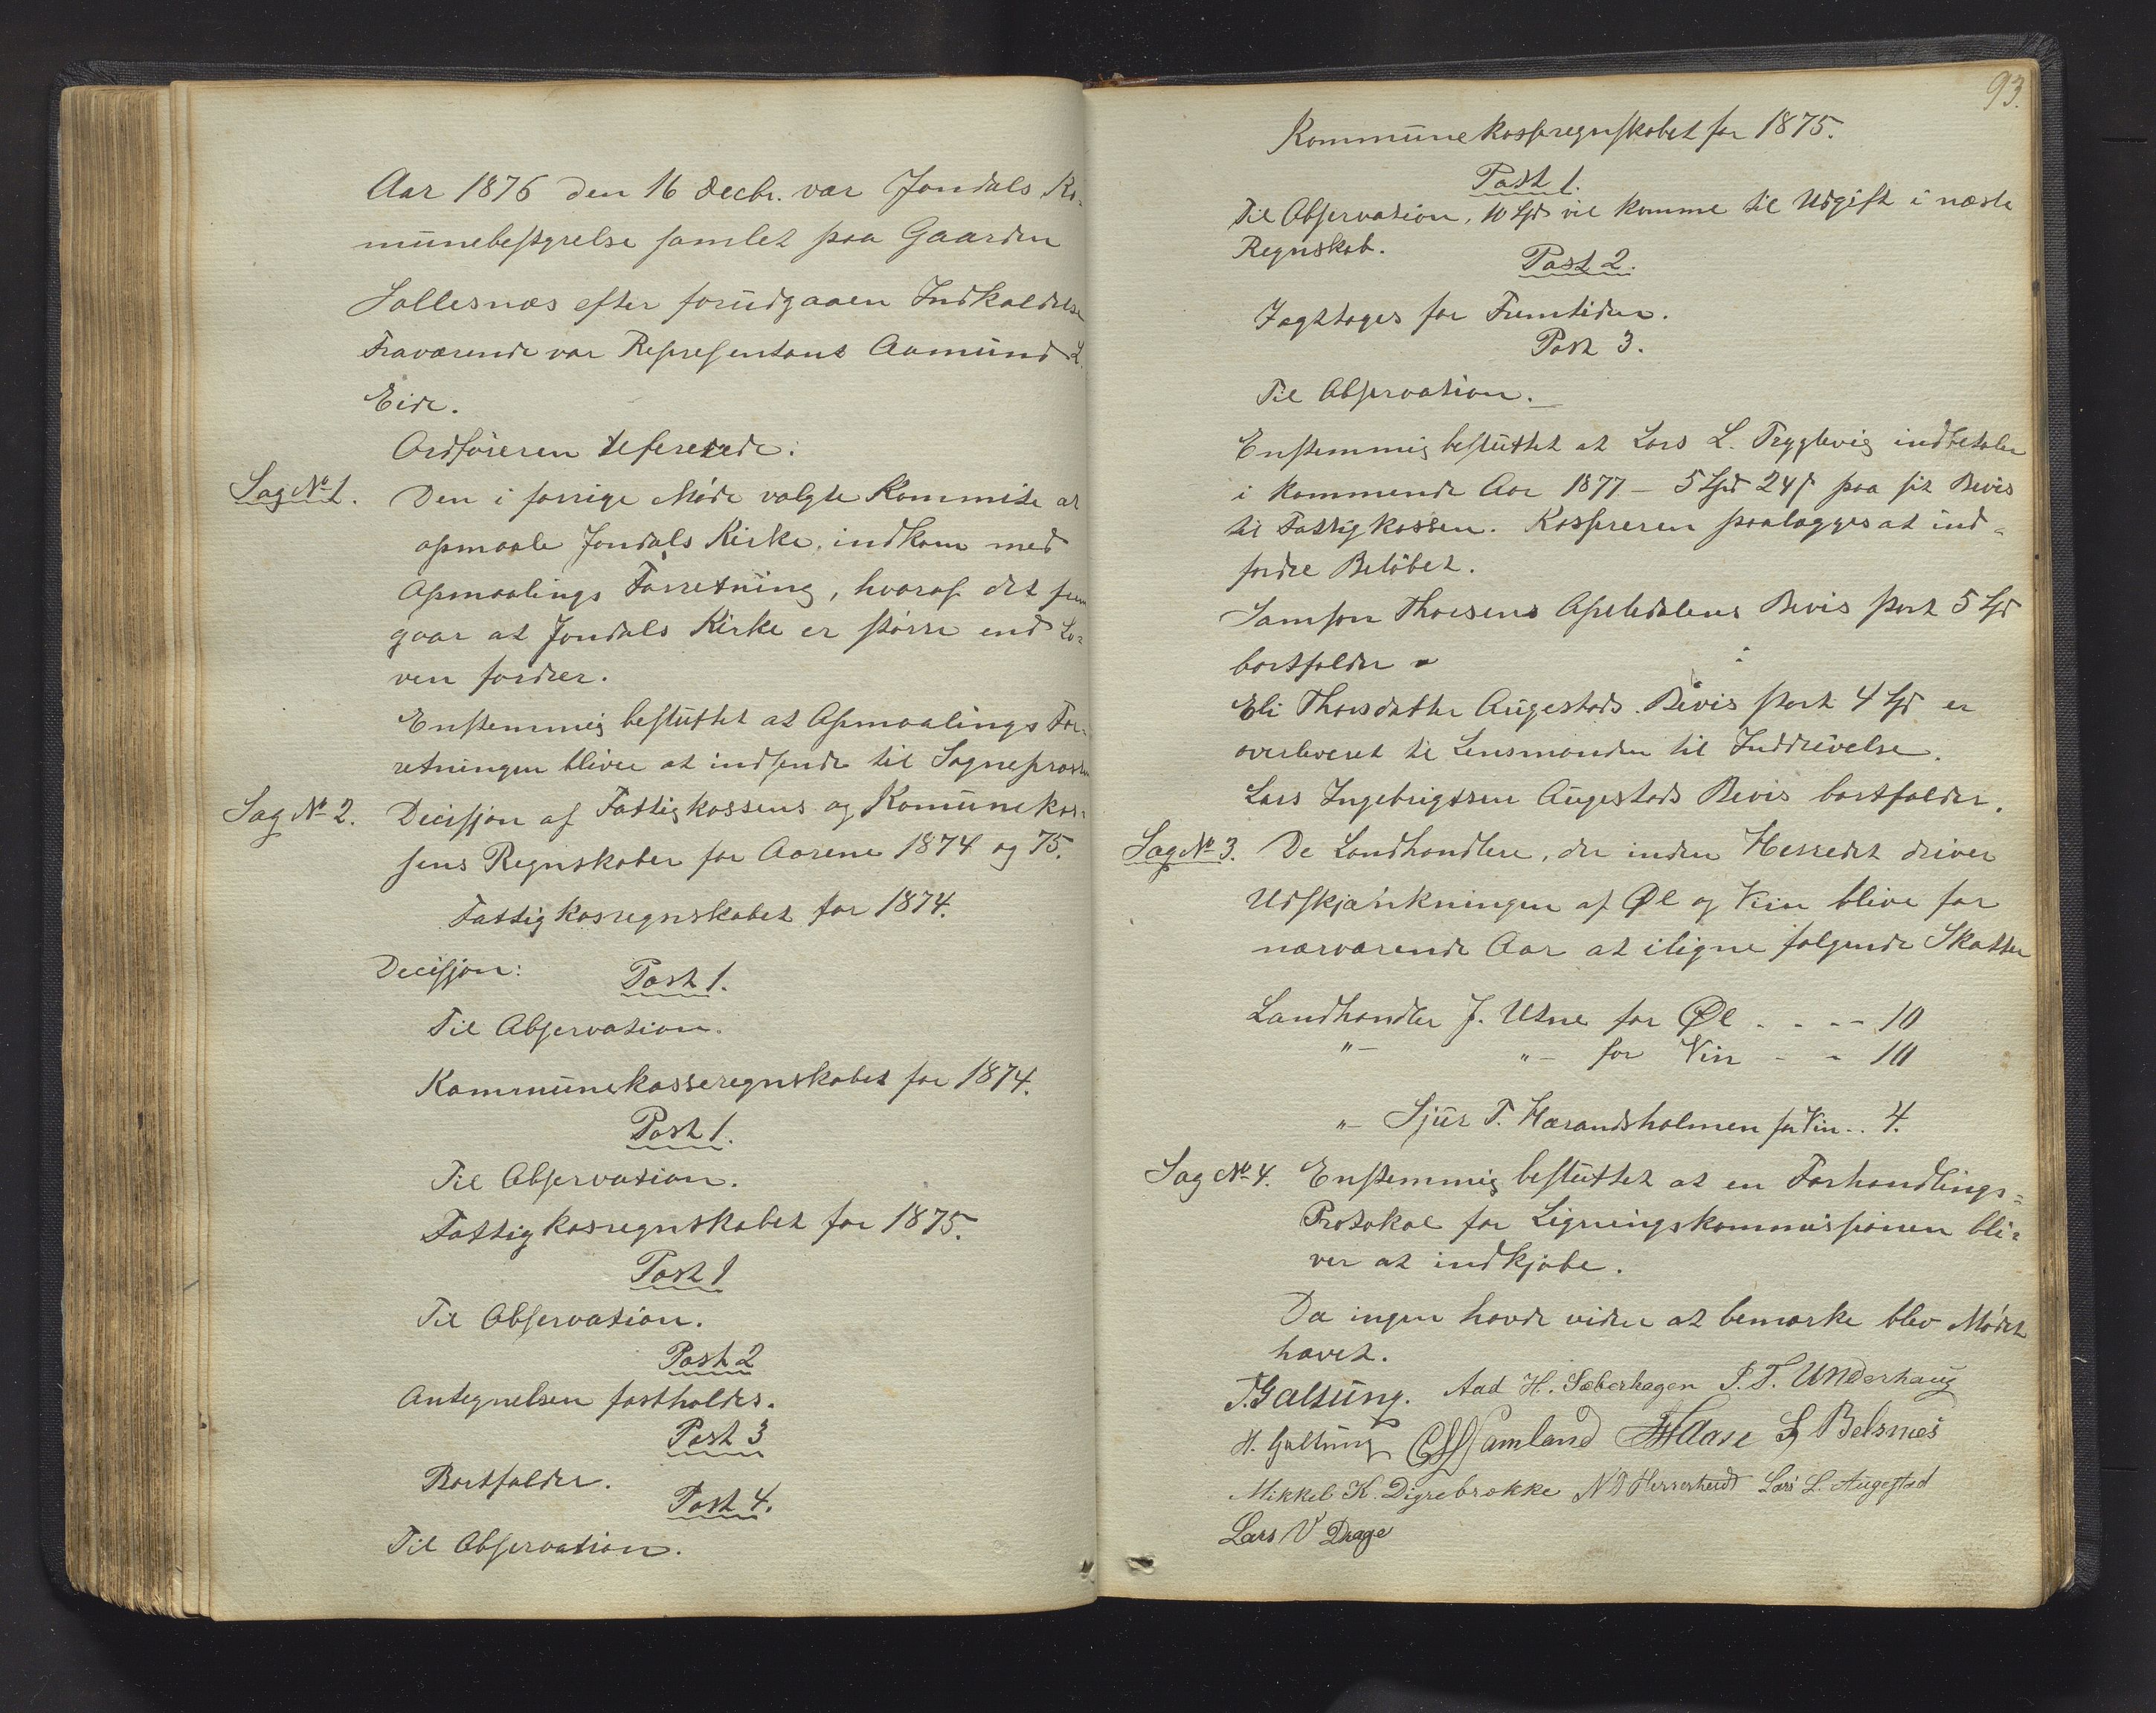 Aar 1876 den 16 Decbr. var Jondals Ko-
munebestyrelse samlet paa Gaarden
Sollesnæs efter forudgaaen Indkaldelse
Fraværende var Representant Aamund L.
Eide.
Ordføreren refererede:
Sag No 1. Den i forrige Møde valgte Kommite at
opmaale Jondals Kirke, indkom med
Opmaalings Forretning, hvoraf det frem
gaar at Jondals Kirke er større end Lo-
ven fordrer.
Enstemmig besluttet at Opmaalings For-
retningen bliver at indsende til Sognepræsten
Sag No 2. Decisjon af Fattigkassens og Komunekas-
sens Regnskaber for Aarene 1874 og 75.
Fattigkasregnskabet for 1874.
Decisjon: Post 1.
Til Observation.
Kommunekasseregnskabet for 1874.
Post 1.
Til Observation.
Fattigkasregnskabet for 1875.
Post 1
Til Observation.
Post 2
Antegnelsen fastholdes.
Post 3
Bortfalder.
Post 4.
Til Observation.
93.
Kommunekasseregnskabet for 1875.
Post 1.
Til Observation, 10 Spd vil komme til Udgift i næste
Regnskab.
Post 2.
Iagttages for Fremtiden.
Post 3.
Til Observation.
Enstemmig besluttet at Lars L. Tryglevig indbetaler
i kommende Aar 1877 – 5 Spd 24 s paa sit Bevis
til Fattigkassen. Kassereren paalægges at ind-
fordre Beløbet.
Samson Thorsens Apseldalens Bevis stort 5 Spd
bortfalder
Eli Thorsdatter Augestads Bevis stort 4 Spd er
overleveret til Lensmanden til Inddrivelse.
Lars Ingebrigtsen Augestads Bevis bortfalder.
Sag No 3. De Landhandlere, der inden Herredet driver
Udskjænkningen af Øl og Viin blive for
nærværende Aar at iligne følgende Skatter
Landhandler J. Utne for Øl . . -- 10
"– "– for Vin - - 10
"– Sjur T. Hærandsholmen for Vin .. 4.
Sag No 4. Enstemmig besluttet at en Forhandlings-
Protokol for Ligningskommissionen bli-
ver at indkjøbe.
Da ingen havde videre at bemærke blev Mødet
hævet.
T. Galtung. Aad H. Sæberhagen S. T. Underhaug
H. Galtung Samland Aase S Belsnes
Mikkel K. Digrebrække N Herrestveidt Lars L. Augestad
Lars V Drage